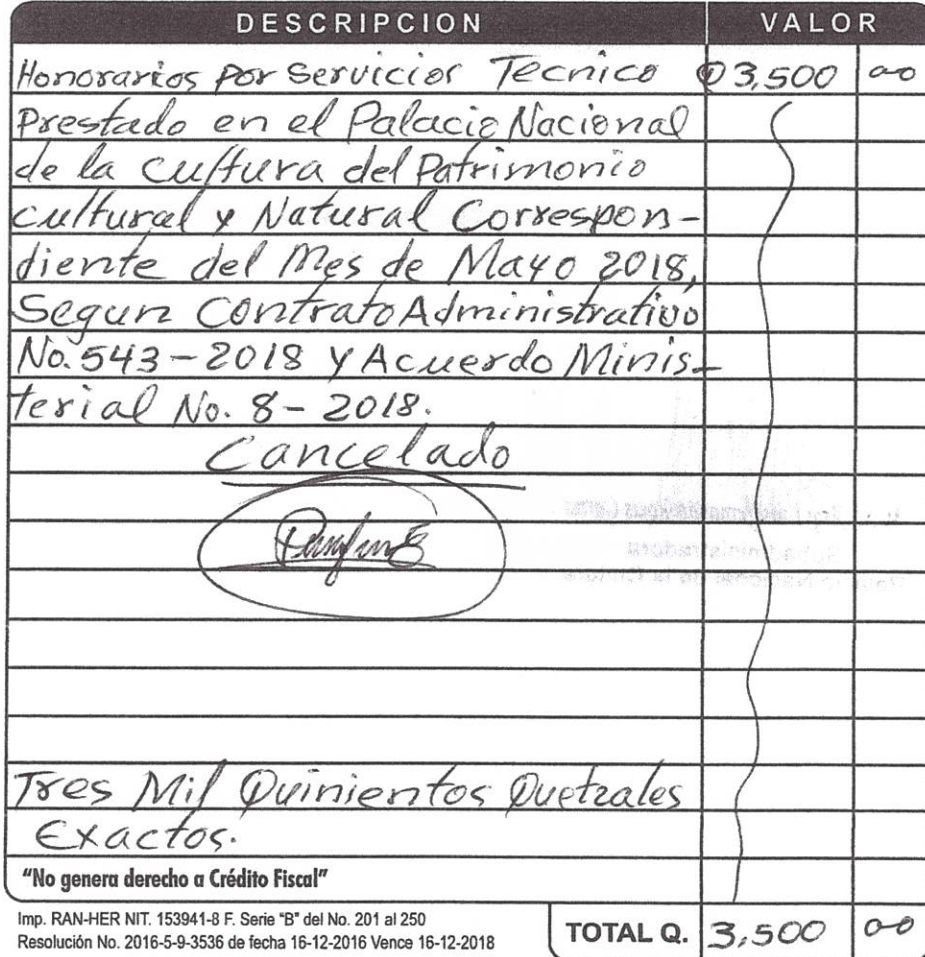 DESCRIPCION VALOR
Honorarios por Servicios Tecnico Q3,500 00
Prestado en el Palacio Nacional
de la Cultura del Patrimonio
cultural y Natural Correspon-
diente del Mes de Mayo 2018,
Segun Contrato Administrativo
No. 543-2018 Y Acuerdo Minis-
terial No. 8-2018.
Cancelado
Tres Mil Quinientos Quetzales
Exactos.
"No genera derecho a Crédito Fiscal"
Imp. RAN-HER NIT. 153941-8 F. Serie "B" del No. 201 al 250
Resolución No. 2016-5-9-3536 de fecha 16-12-2016 Vence 16-12-2018
TOTAL Q. 3,500 00